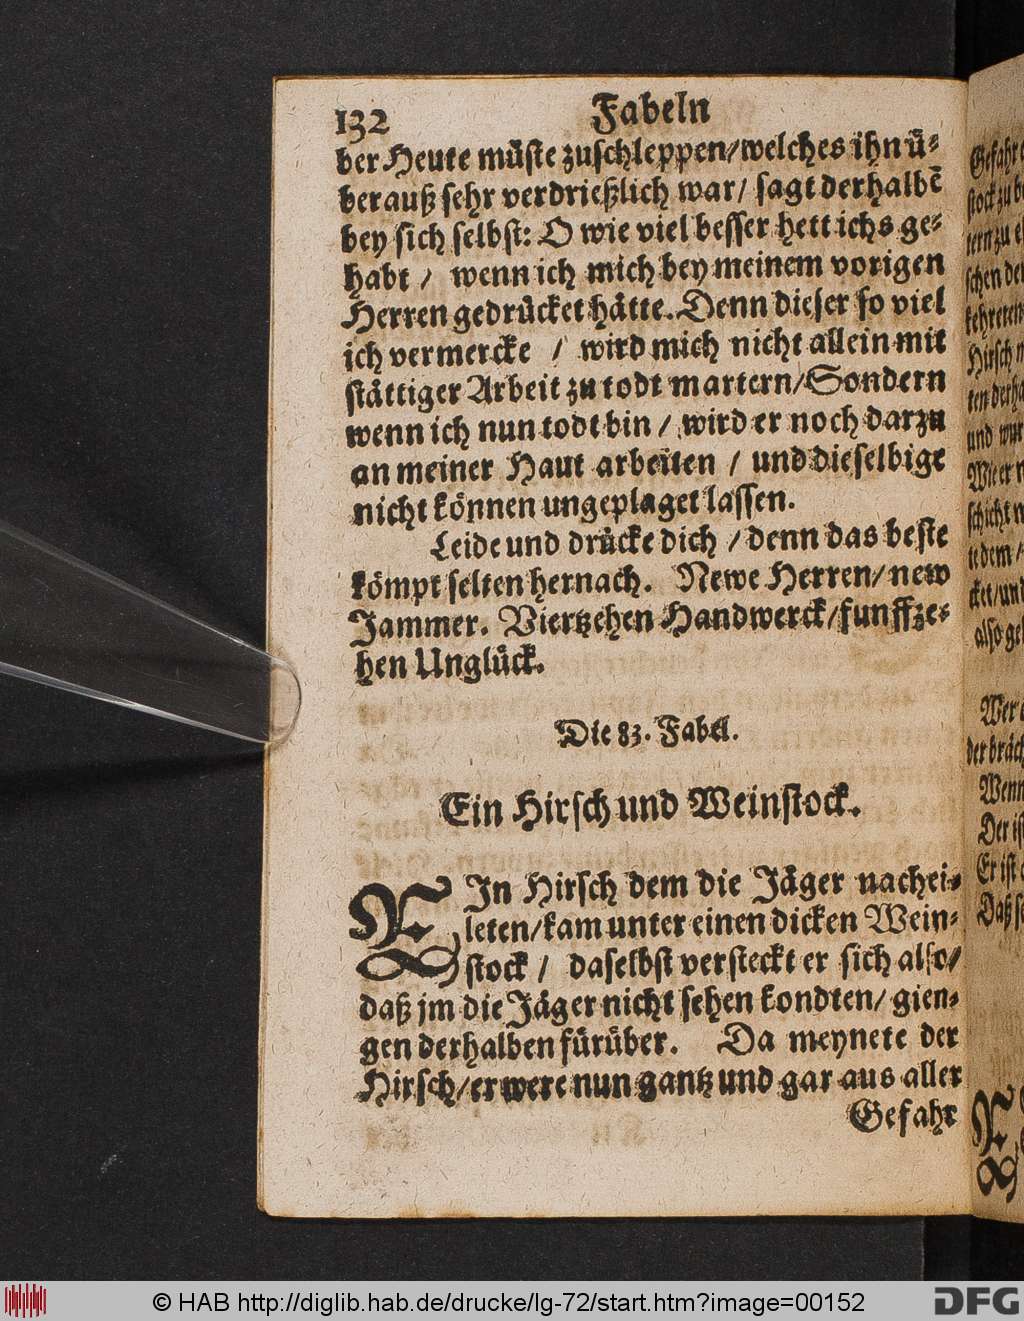 132 Fabeln
der Heute müste zuschleppen/welches ihn ü-
berauß sehr verdrießlich war/ sagt derhalbẽ
bey sich selbst: O wie viel besser hett ichs ge-
habt / wenn ich mich bey meinem vorigen
Herren gedrücket hätte. Denn dieser so viel
ich vermercke / wird mich nicht allein mit
stättiger Arbeit zu todt martern/Sondern
wenn ich nun todt bin / wird er noch darzu
an meiner Haut arbeiten / und dieselbige
nicht können ungeplaget lassen.
Leide und drücke dich / denn das beste
kömpt selten hernach. Newe Herren/ new
Jammer. Viertzehen Handwerck/funffze-
hen Unglück.
Die 83. Fabel.
Ein Hirsch und Weinstock.
EIn Hirsch dem die Jäger nachei-
leten/kam unter einen dicken Wein-
stock / daselbst versteckt er sich also/
daß jm die Jäger nicht sehen kondten/ gien-
gen derhalben fürüber. Da meynete der
Hirsch/er were nun gantz und gar aus aller
Gefahr
Gefahr
stock zu
tern zu
schen
kehreten
Hirsch
und
Wie er
schicht
te dem /
ket/und
also
Wer
der
Wenn
Der
Er ist
Daß
© HAB http://diglib.hab.de/drucke/lg-72/start.htm?image=00152
DFG